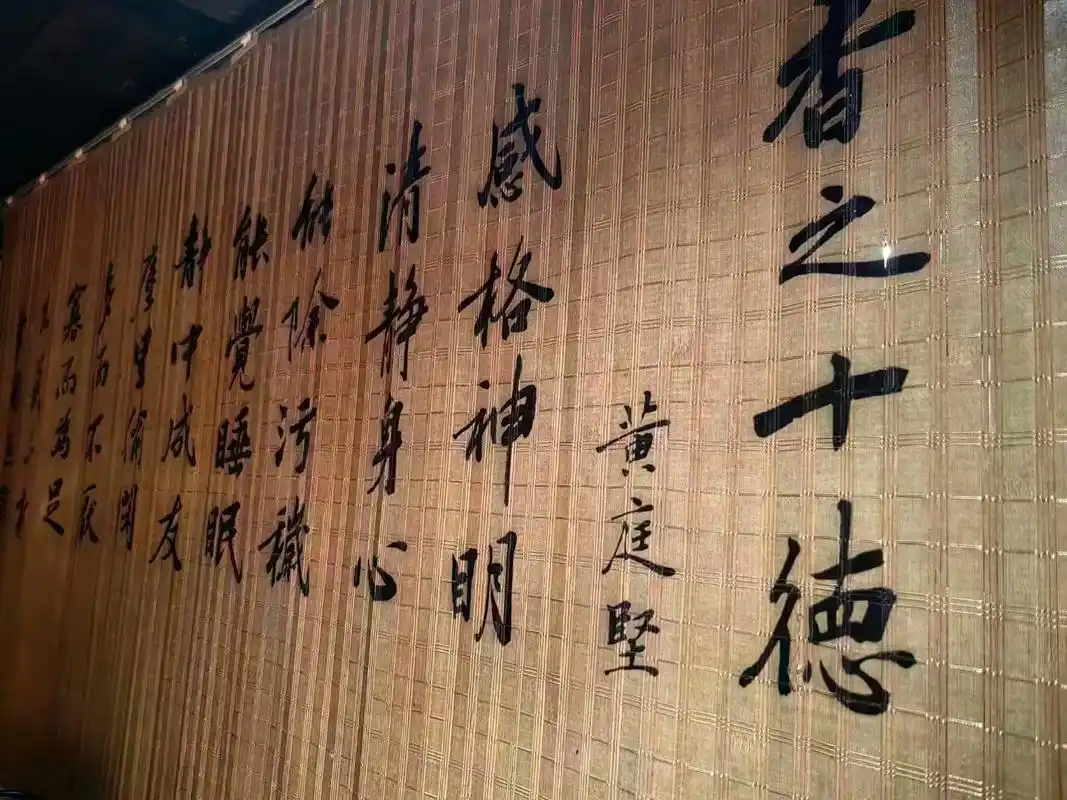 香之十德
黄庭堅
感格神明
清静身心
能除污穢
能覺睡眠
静中成友
塵里偷閑
多而不厭
寡而為足